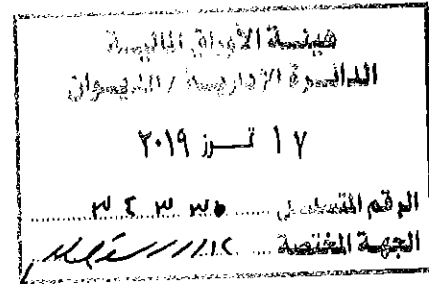 هيئة الأوراق المالية
الدائرة الإدارية / الديوان
١٧ تموز ٢٠١٩
الرقم المتسلسل
الجهة المختصة